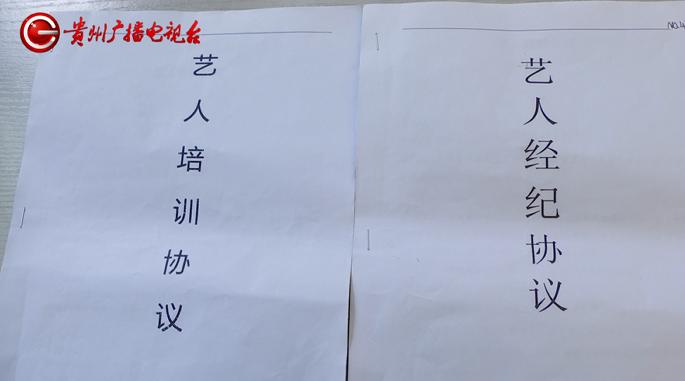 贵州广播电视台
艺人培训协议
艺人经纪协议